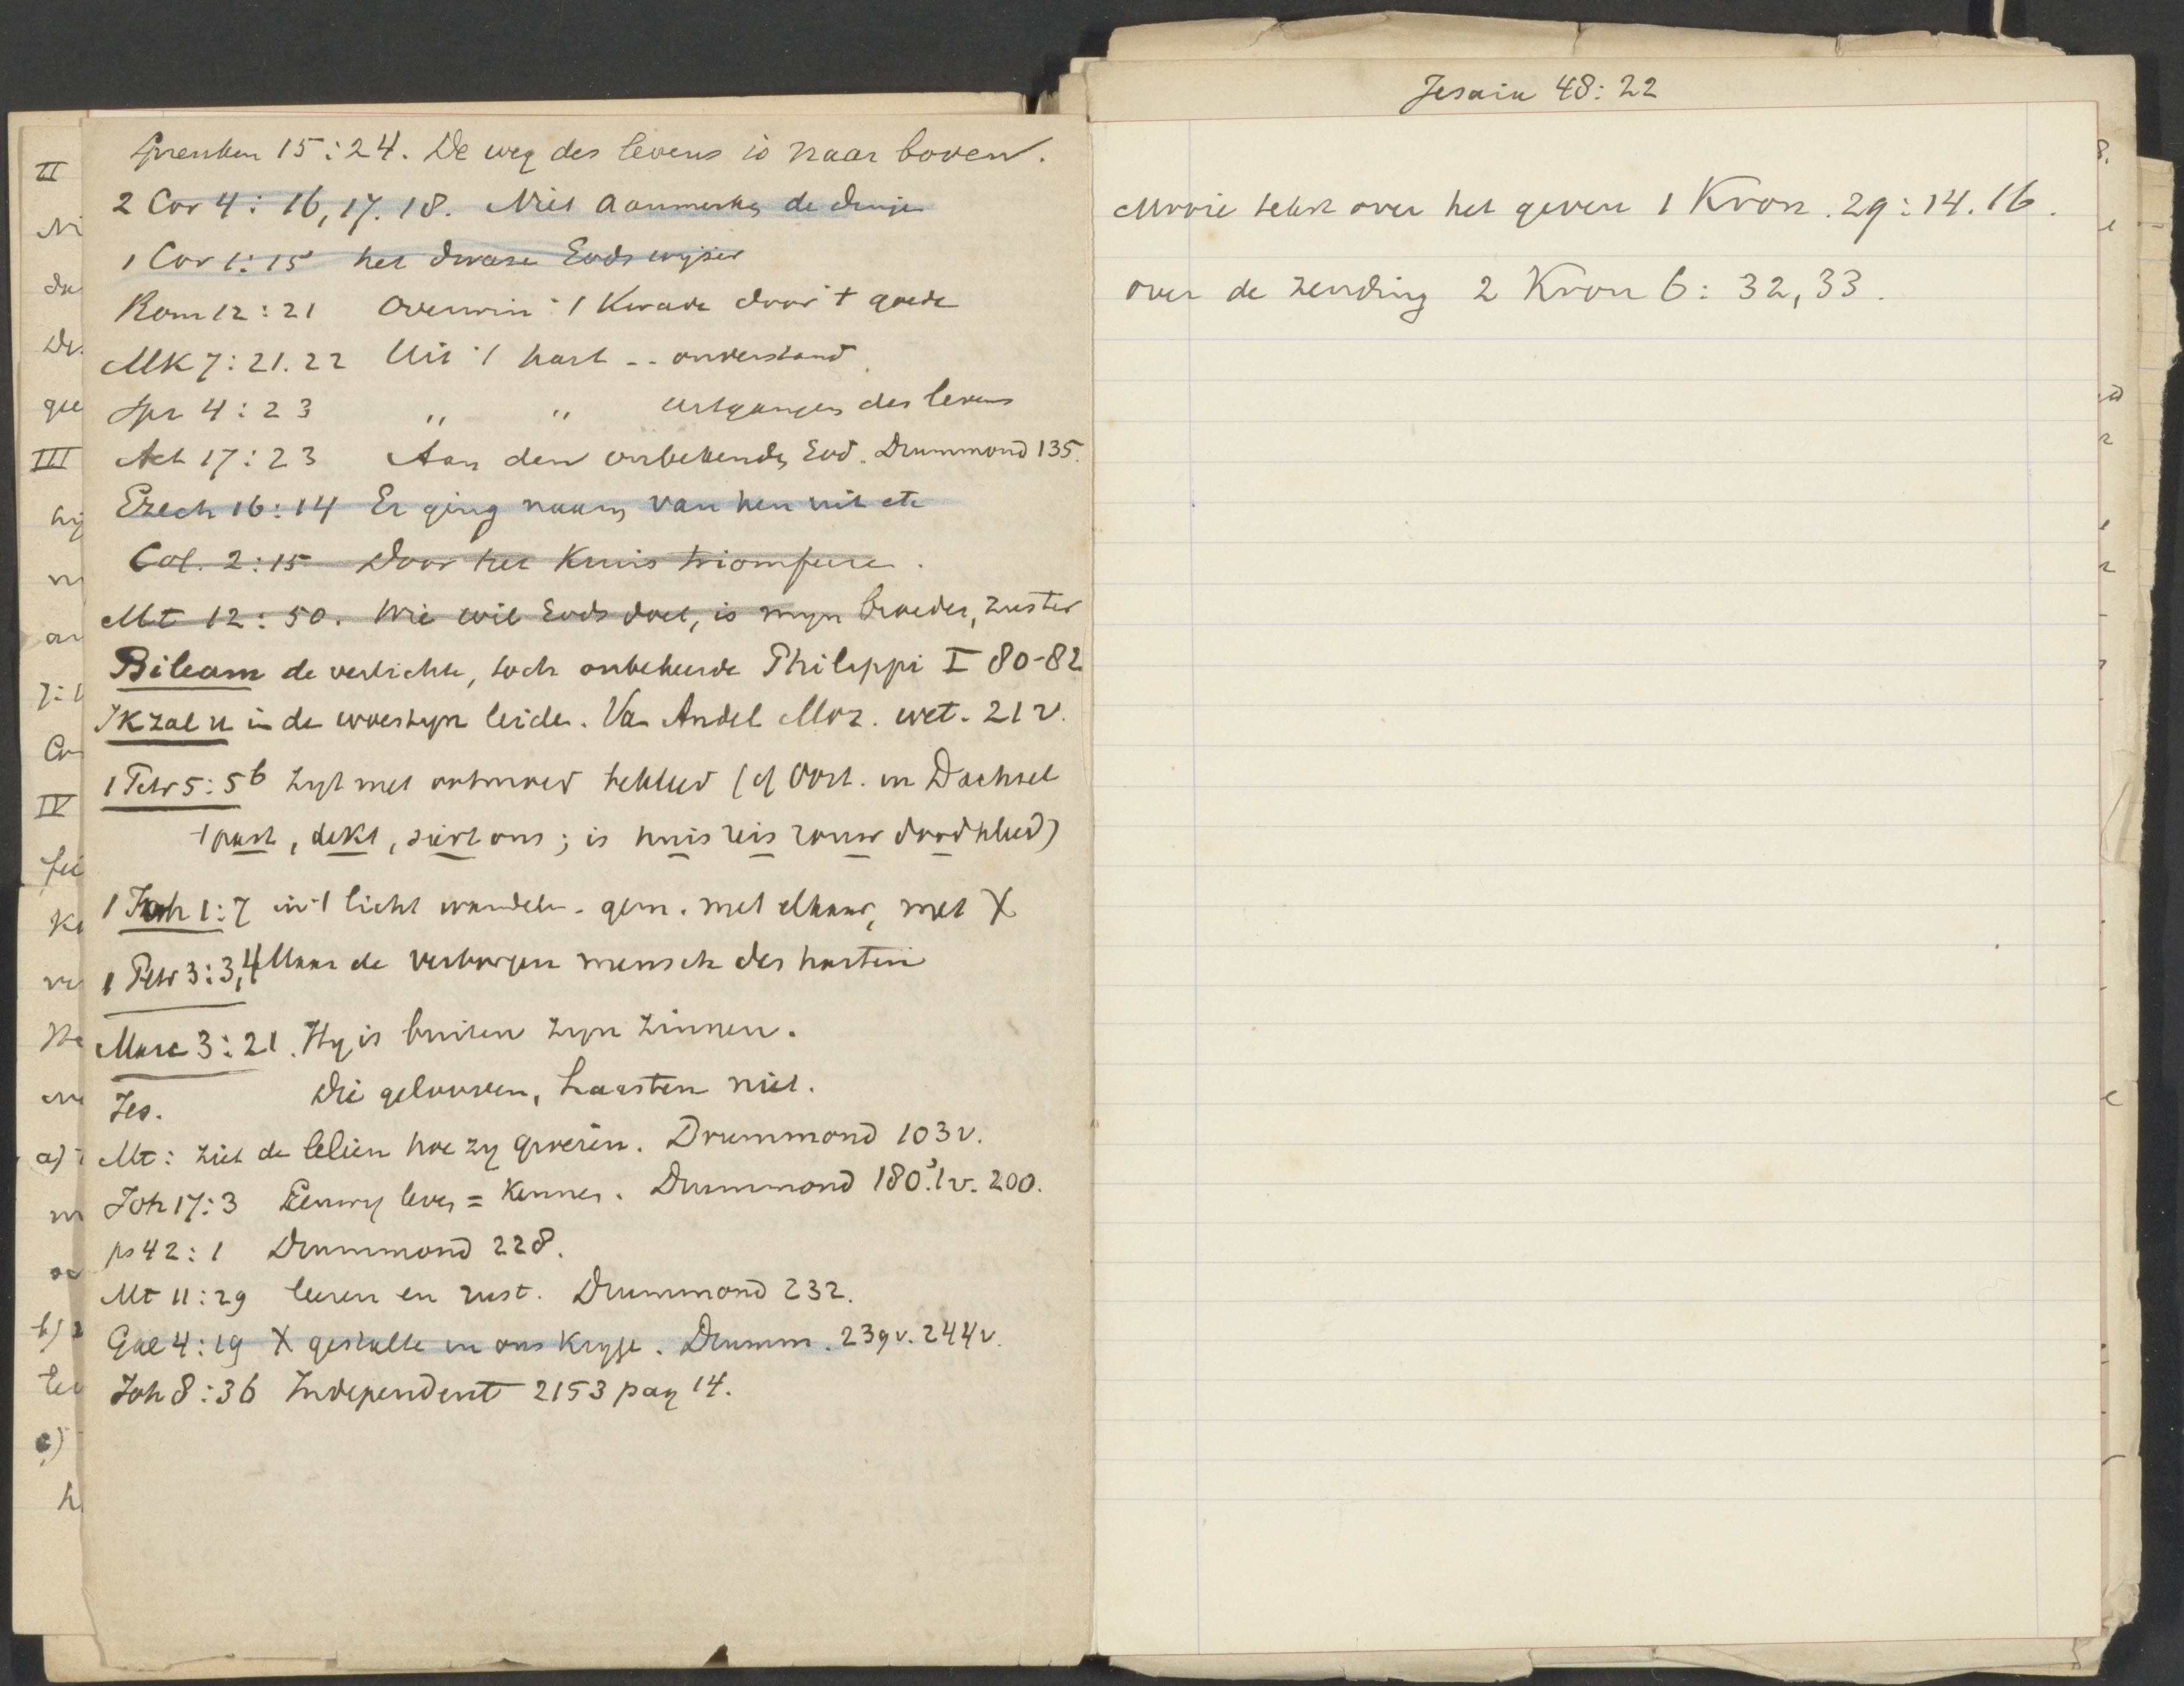 Spreuken 15:24. De weg des levens is naar boven.
2 Cor 4: 16, 17. 18. Niet aanmerken de dingen
1 Cor 1:15 het dwaze Gods wijzer
Rom 12:21 Overwin 't Kwade door 't goede
Mk 7:21.22 Uit 't hart -- onverstand
Spr 4:23 " " uitgangen des levens
Act 17:23 Aan den onbekenden God. Drummond 135.
Ezech 16:14 Er ging naam van hen uit etc
Col. 2:15 Door het Kruis triomfeere.
Mt 12:50. Wie wil Gods doet, is mijn broeder, zuster
Bileam de verlichte, toch onbekeerde Philippi I 80-82
Ik zal u in de woestijn leiden. Van Andel Moz. wet. 21 v.
1 Petr 5:5b Zijt met ootmoed bekleed (cf Oort. in Dachsel
't past, dekt, siert ons; is huis reis rouw doodkleed)
1 Joh 1:7 in 't licht wandelen - gem. met elkaar, met X
1 Petr 3:3,4 Maar de verborgen mensch des harten
Marc 3:21. Hy is buiten zyn zinnen.
Jes. Die gelooven, haasten niet.
Mt: Ziet de leliën hoe zy groeien. Drummond 103 v.
Joh 17:3 Eeuwig leven = Kennen. Drummond 180.1 v. 200.
ps 42:1 Drummond 228.
Mt 11:29 leeren en rust. Drummond 232.
Gal 4:19 X gestalte in ons Kryge. Drumm. 239 v. 244 v.
Joh 8:36 Independent 2153 pag 14.
Jesaia 48:22
Mooie tekst over het geven 1 Kron. 29:14.16.
over de zending 2 Kron 6: 32, 33.